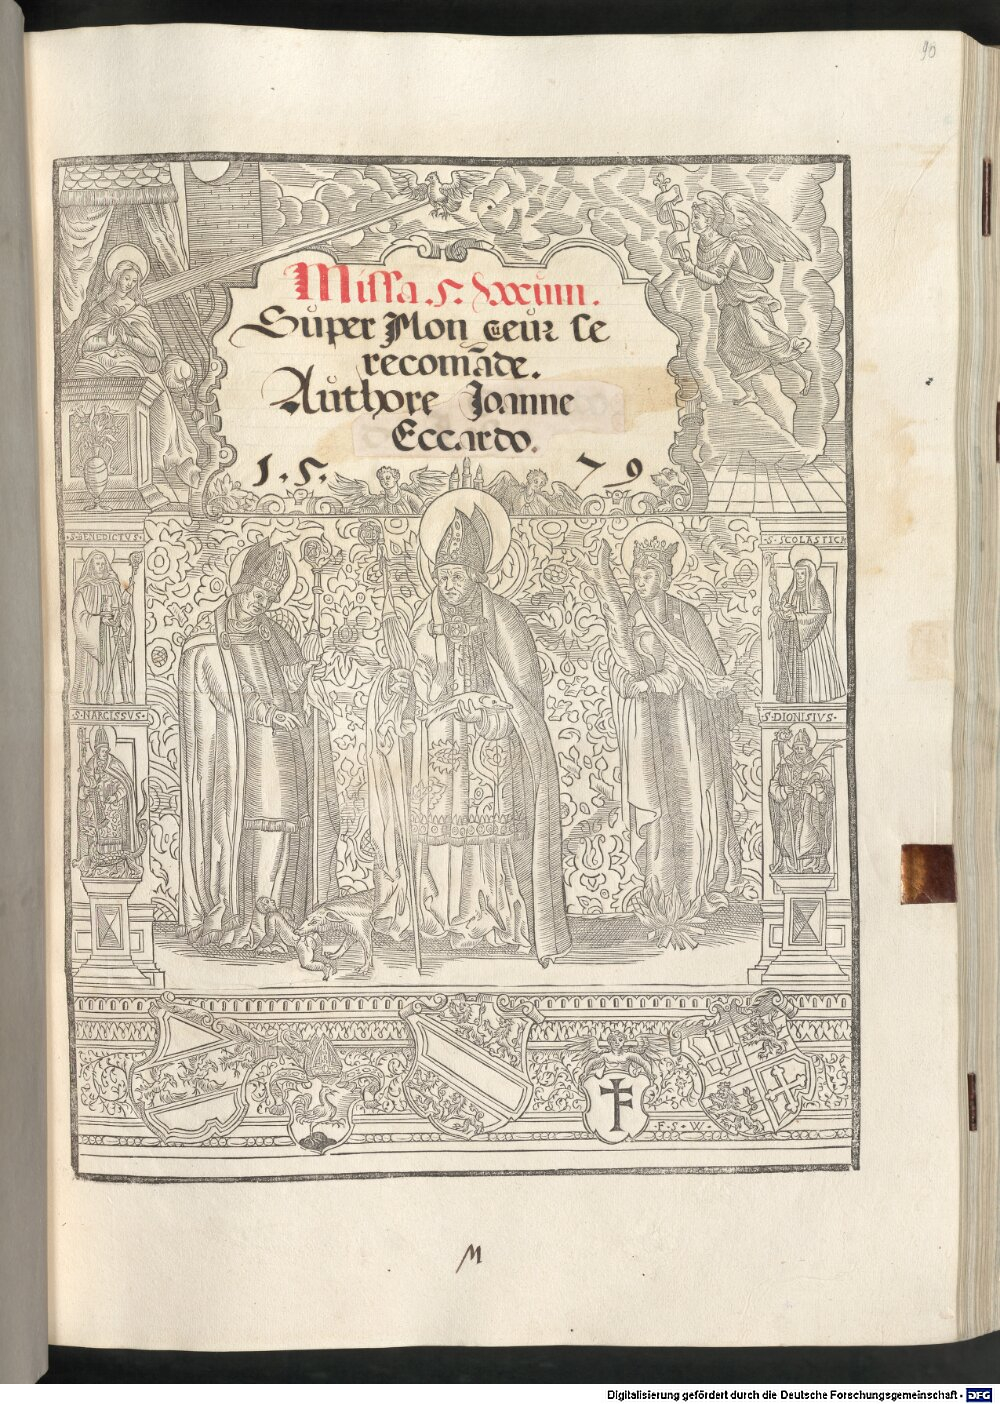 90
Missa. 5. vocum.
Super Mon cueur se
recomãde.
Authore Joanne
Eccardo.
1. 5. 79
·S·BENEDICTVS·
·S·SCOLASTICA
·S·NARCISSVS·
·S·DIONISIVS·
·F·S·W·
M
Digitalisierung gefördert durch die Deutsche Forschungsgemeinschaft - DFG